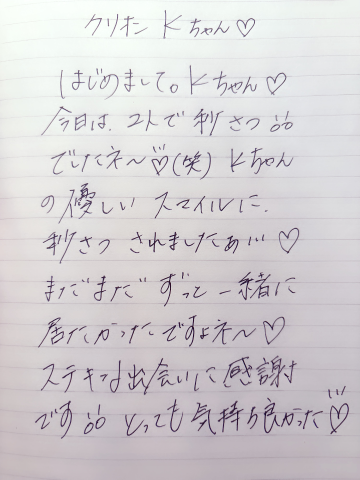 クリオネ Kちゃん♡
はじめまして。Kちゃん♡
今日は、コトで秒さつ
でしたネ〜♡(笑) Kちゃん
の優しい スマイルに、
秒さつ されましたぁ!!! ♡
まだまだ ずっと一緒に
居たかったですよネ〜♡
ステキな出会いに感謝
です とっても気持ち良かった♡